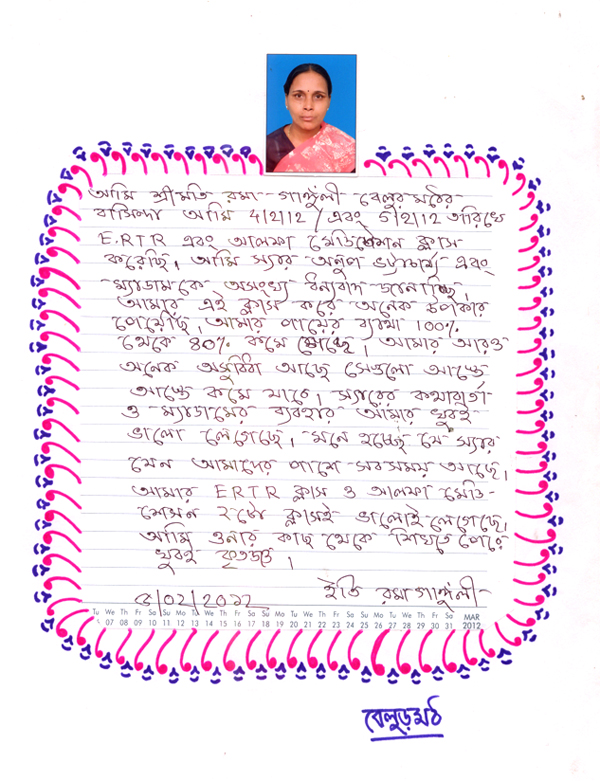 আমি শ্রীমতি রমা গাঙ্গুলী বেলুর মঠের
বাসিন্দা আমি 4/2/12 / এবং 5/2/12 তারিখে
E.RTR এবং আলফা মেডিটেশান ক্লাস
করেছি, আমি স্যার অতুল ভট্টাচার্য্য এবং
ম্যাডামকে অসংখ্য ধন্যবাদ জানাচ্ছি,
আমার এই ক্লাস করে অনেক উপকার
পেয়েছি, আমার পায়ের ব্যথা 100%
থেকে 80% কমে গেছে। আমার আরও
অনেক অসুবিধা আছে সেগুলো আস্তে
আস্তে কমে যাবে। স্যারের কথাবার্তা
ও ম্যাডামের ব্যবহার আমার খুবই
ভালো লেগেছে, মনে হচ্ছে যে স্যার
যেন আমাদের পাশে সবসময় আছে,
আমার ERTR ক্লাস ও আলফা মেডি-
শেসন ২টো ক্লাসই ভালোই লেগেছে,
আমি ওনার কাছ থেকে শিখতে পেরে
খুবই কৃতজ্ঞ।
ইতি রমা গাঙ্গুলী
৫/02/2012
Tu We Th Fr Sa Su Mo Tu We Th Fr Sa Su Mo Tu We Th Fr Sa Su Mo Tu We Th Fr Sa MAR
07 08 09 10 11 12 13 14 15 16 17 18 19 20 21 22 23 24 25 26 27 28 29 30 31 2012
বেলুড়মঠ